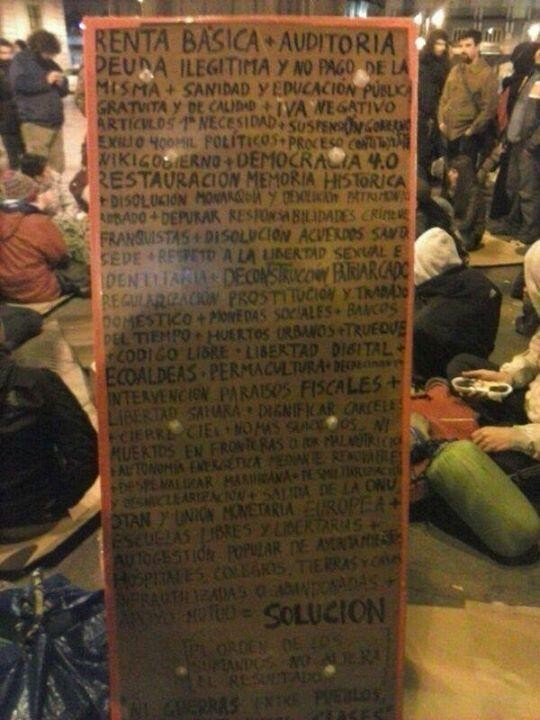 RENTA BÁSICA + AUDITORIA
DEUDA ILEGITIMA Y NO PAGO DE LA
MISMA + SANIDAD Y EDUCACIÓN PÚBLICA
GRATUITA Y DE CALIDAD + IVA NEGATIVO
ARTICULOS 1ª NECESIDAD + SUSPENSIÓN GOBIERNO
EXILIO 400MIL POLÍTICOS + PROCESO CONSTITUYENTE
WIKIGOBIERNO + DEMOCRACIA 4.0
RESTAURACION MEMORIA HISTÓRICA
+ DISOLUCIÓN MONARQUÍA Y DEVOLUCIÓN PATRIMONIO
ROBADO + DEPURAR RESPONSABILIDADES CRIMENES
FRANQUISTAS + DISOLUCION ACUERDOS SANTA
SEDE + RESPETO A LA LIBERTAD SEXUAL E
IDENTITARIA + DECONSTRUCCIÓN PATRIARCADO
REGULARIZACIÓN PROSTITUCIÓN Y TRABAJO
DOMÉSTICO + MONEDAS SOCIALES + BANCOS
DEL TIEMPO + HUERTOS URBANOS + TRUEQUE
+ CODIGO LIBRE + LIBERTAD DIGITAL +
ECOALDEAS + PERMACULTURA + DECRECIMIENTO
INTERVENCIÓN PARAISOS FISCALES +
LIBERTAD SAHARA + DIGNIFICAR CARCELES
+ CIERRE CIEs + NO MAS SUICIDIOS, NI
MUERTOS EN FRONTERAS O POR MALNUTRICIÓN
+ AUTONOMIA ENERGÉTICA MEDIANTE RENOVABLES
+ DESPENALIZAR MARIHUANA + DESMILITARIZACIÓN
Y DESNUCLEARIZACIÓN + SALIDA DE LA ONU
OTAN Y UNIÓN MONETARIA EUROPEA +
ESCUELAS LIBRES Y LIBERTARIAS +
AUTOGESTIÓN POPULAR DE AYUNTAMIENTOS
HOSPITALES, COLEGIOS, TIERRAS Y CASAS
INFRAUTILIZADAS O ABANDONADAS +
APOYO MUTUO = SOLUCION
EL ORDEN DE LOS
SUMANDOS NO ALTERA
EL RESULTADO
"NI GUERRAS ENTRE PUEBLOS,
CLASES"